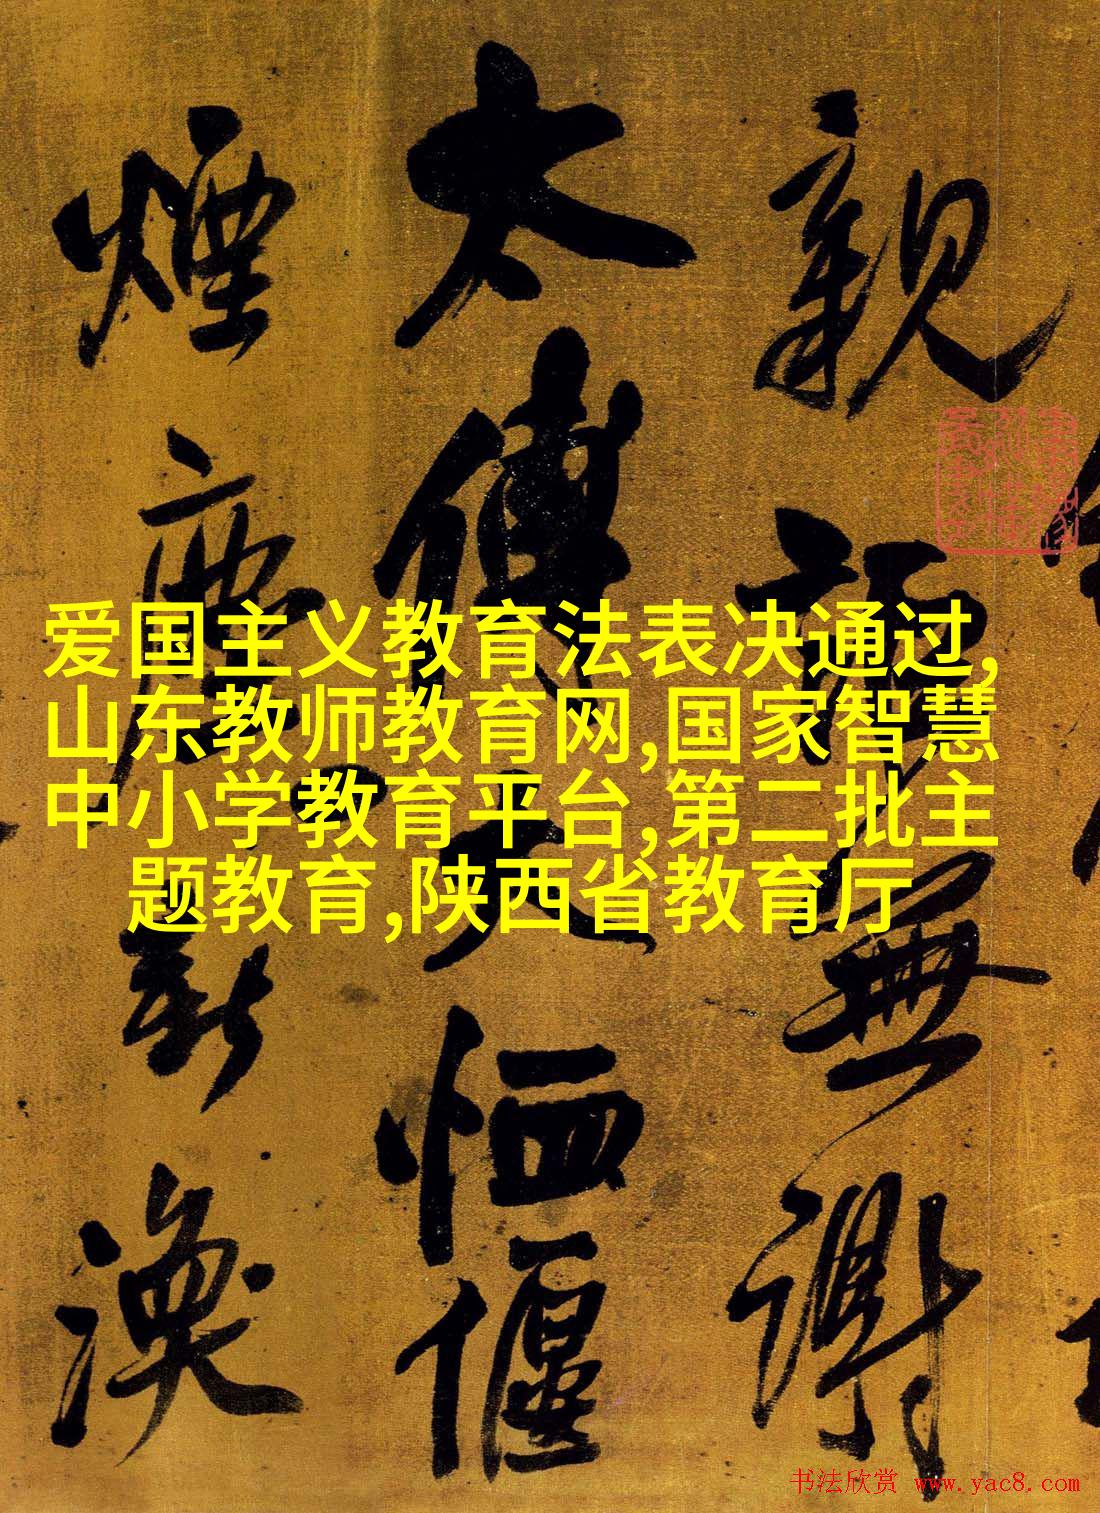 親
太傅
煙
無謝
恤偃
渙
爱国主义教育法表决通过,
山东教师教育网,国家智慧
中小学教育平台,第二批主
题教育,陕西省教育厅
书法欣赏 www.yac8.com